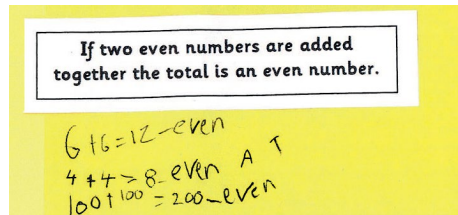 If two even numbers are added
together the total is an even number.
6+6=12-even
4+4=8-even A T
100+100=200-even